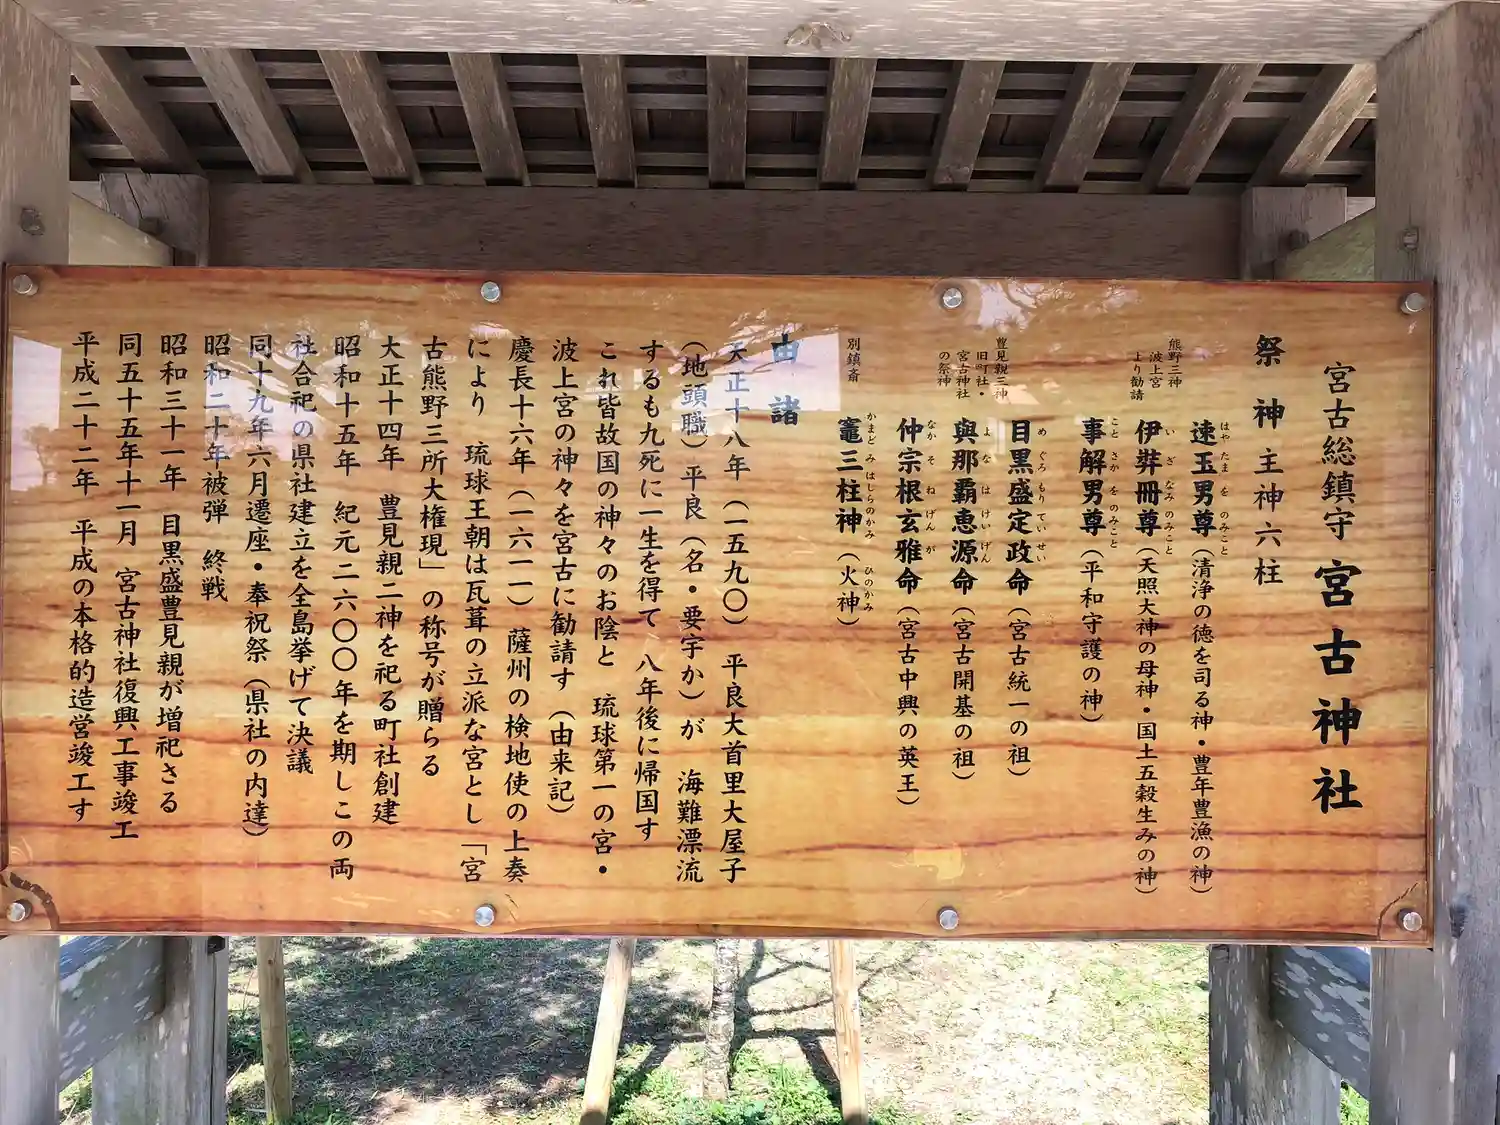 宮古総鎮守 宮古神社
祭神 主神六柱
熊野三神
波上宮
より勧請
速玉男尊（清浄の徳を司る神・豊年豊漁の神）
はやたまをのみこと
伊弉冊尊（天照大神の母神・国土五穀生みの神）
いざなみのみこと
事解男尊（平和守護の神）
ことさかをのみこと
豊見親三神
旧町社・
宮古神社
の祭神
目黒盛定政命（宮古統一の祖）
めぐろもりていせい
與那覇恵源命（宮古開基の祖）
よなはけいげん
仲宗根玄雅命（宮古中興の英王）
なかそねげんが
別鎮斎
竈三柱神（火神）
かまどみはしらのかみ ひのかみ
由諸
天正十八年（一五九〇） 平良大首里大屋子
（地頭職）平良（名・要宇か）が 海難漂流
するも九死に一生を得て 八年後に帰国す
これ皆故国の神々のお陰と 琉球第一の宮・
波上宮の神々を宮古に勧請す（由来記）
慶長十六年（一六一一）薩州の検地使の上奏
により 琉球王朝は瓦葺の立派な宮とし「宮
古熊野三所大権現」の称号が贈らる
大正十四年 豊見親二神を祀る町社創建
昭和十五年 紀元二六〇〇年を期しこの両
社合祀の県社建立を全島挙げて決議
同十九年六月遷座・奉祝祭（県社の内達）
昭和二十年被弾 終戦
昭和三十一年 目黒盛豊見親が増祀さる
同五十五年十一月 宮古神社復興工事竣工
平成二十二年 平成の本格的造営竣工す